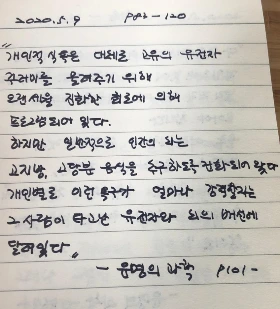 2020.5.9 P82-120
"개인적 식욕은 대체로 고유의 유전자
꾸러미를 물려주기 위해
오랜세월 진화한 회로에 의해
프로그램되어 있다.
하지만 일반적으로 인간의 뇌는
고지방, 고당분 음식을 추구하도록 진화되어 왔다
개인별로 이런 욕구가 얼마나 강력할지는
그 사람이 타고난 유전자와 뇌의 배선에
달려있다"
- 운명의 과학 P101-